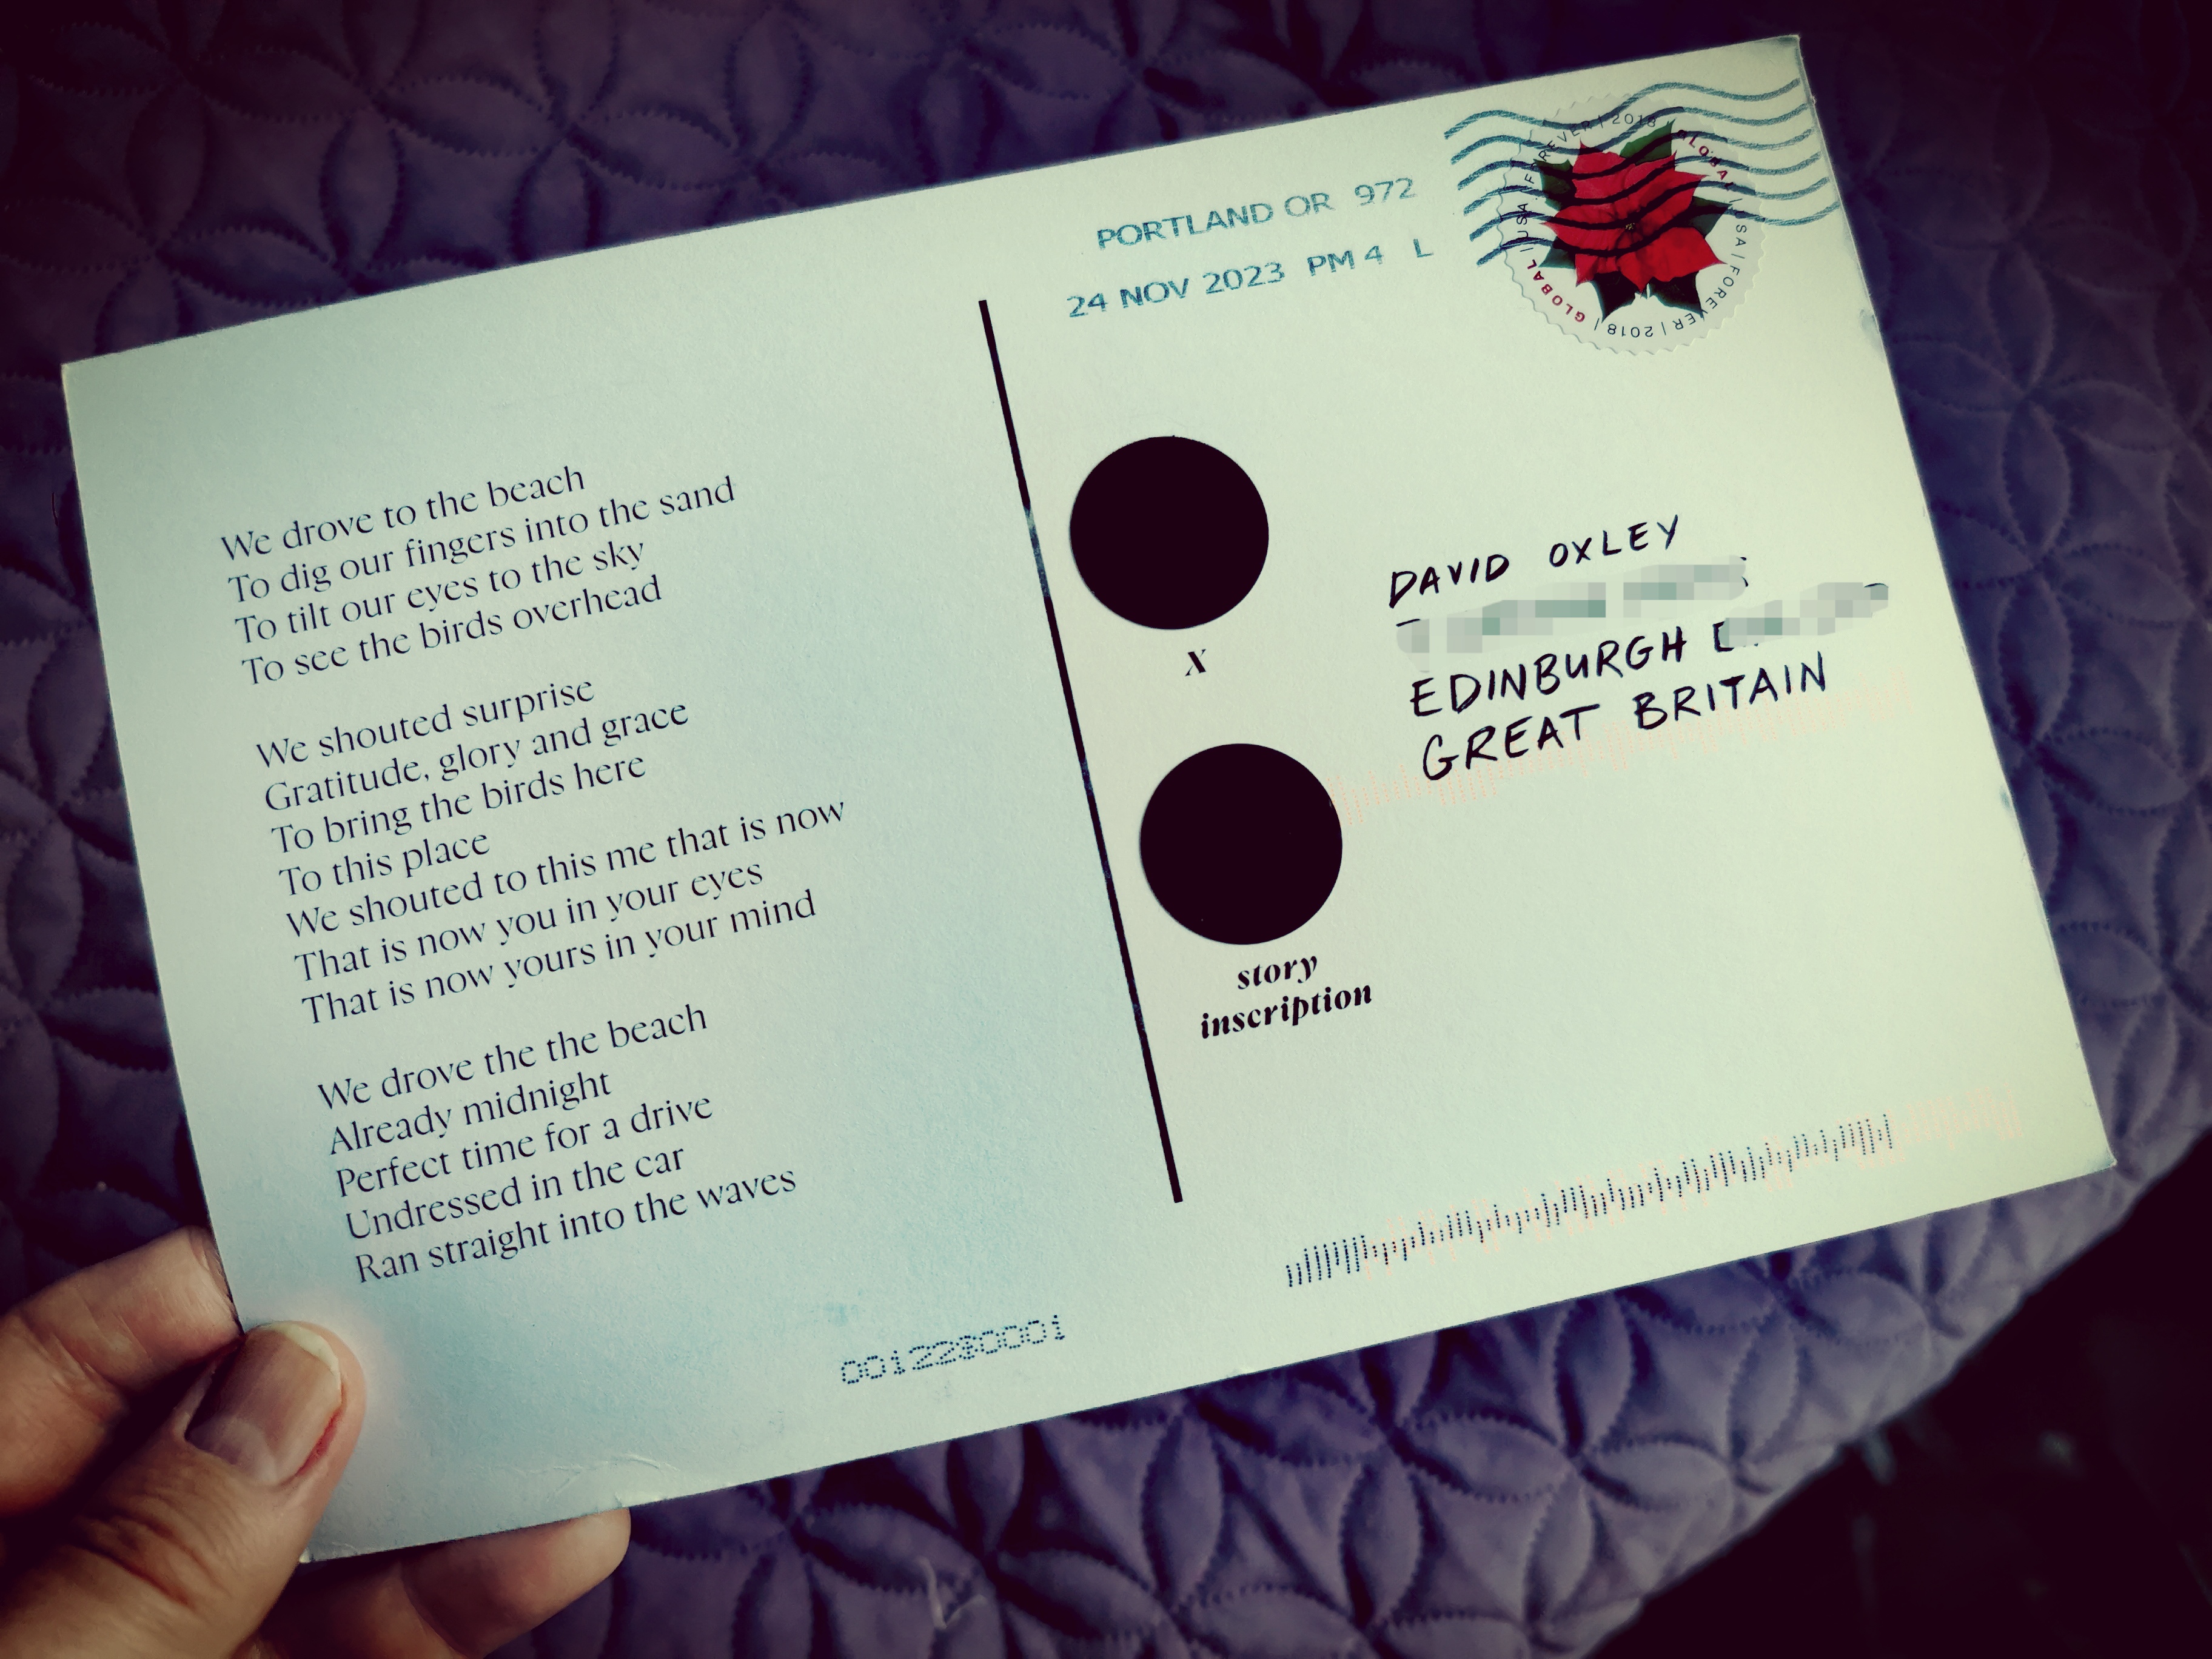 We drove to the beach
To dig our fingers into the sand
To tilt our eyes to the sky
To see the birds overhead
We shouted surprise
Gratitude, glory and grace
To bring the birds here
To this place
We shouted to this me that is now
That is now you in your eyes
That is now yours in your mind
We drove the the beach
Already midnight
Perfect time for a drive
Undressed in the car
Ran straight into the waves
PORTLAND OR 972
24 NOV 2023 PM 4 L
GLOBAL | USA | FOREVER | 2018 | GLOBAL | USA | FOREVER | 2018 |
x
story
inscription
DAVID OXLEY
EDINBURGH
GREAT BRITAIN